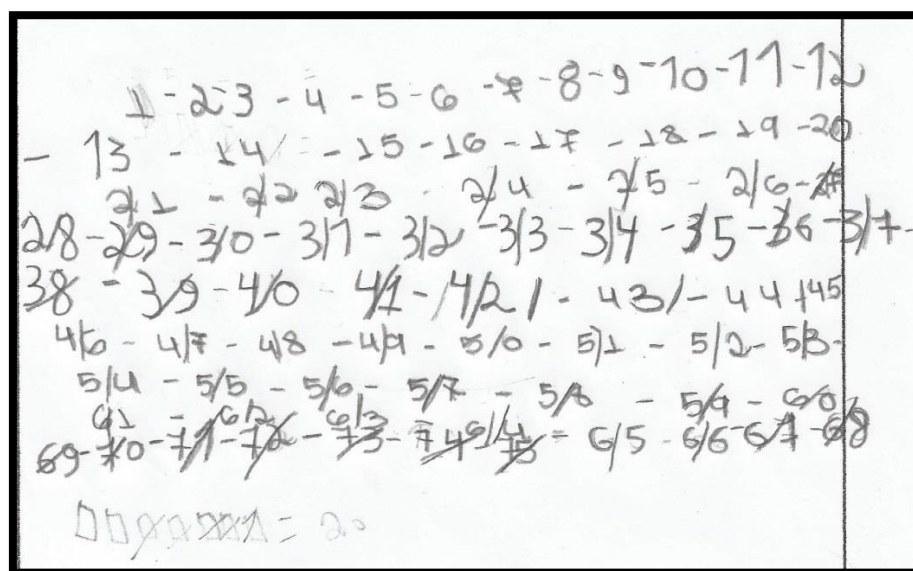 1 - 2 - 3 - 4 - 5 - 6 - 7 - 8 - 9 - 10 - 11 - 12
- 13 - 14 - 15 - 16 - 17 - 18 - 19 - 20
2/1 - 2/2 2/3 - 2/4 - 2/5 - 2/6 -
2/8 - 2/9 - 3/0 - 3/1 - 3/2 - 3/3 - 3/4 - 3/5 - 3/6 - 3/7 -
3/8 - 3/9 - 4/0 - 4/1 - 4/2 / - 43 / - 44 / 45
4/6 - 4/7 - 4/8 - 4/9 - 5/0 - 5/1 - 5/2 - 5/3 -
5/4 - 5/5 - 5/6 - 5/7 - 5/8 - 5/9 - 6/0
61 - 6/2 - 6/3 - 6/4
69 - 70 - 71 - 72 - 73 - 74 75 = 6/5 - 6/6 - 67 - 68
= 20